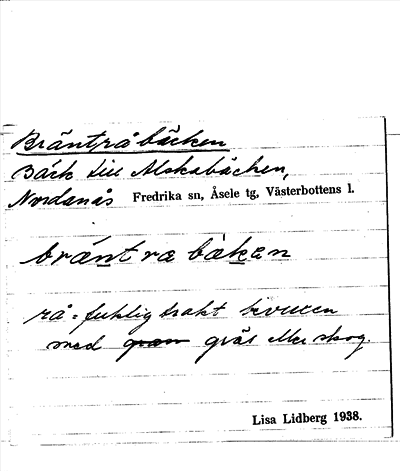 Bräntråbäcken
Bäck till Alskabäcken,
Nordanås Fredrika sn, Åsele tg, Västerbottens l.
bräntræbäkæn
rå = fuktig trakt bevuxen
med gräs eller skog.
Lisa Lidberg 1938.